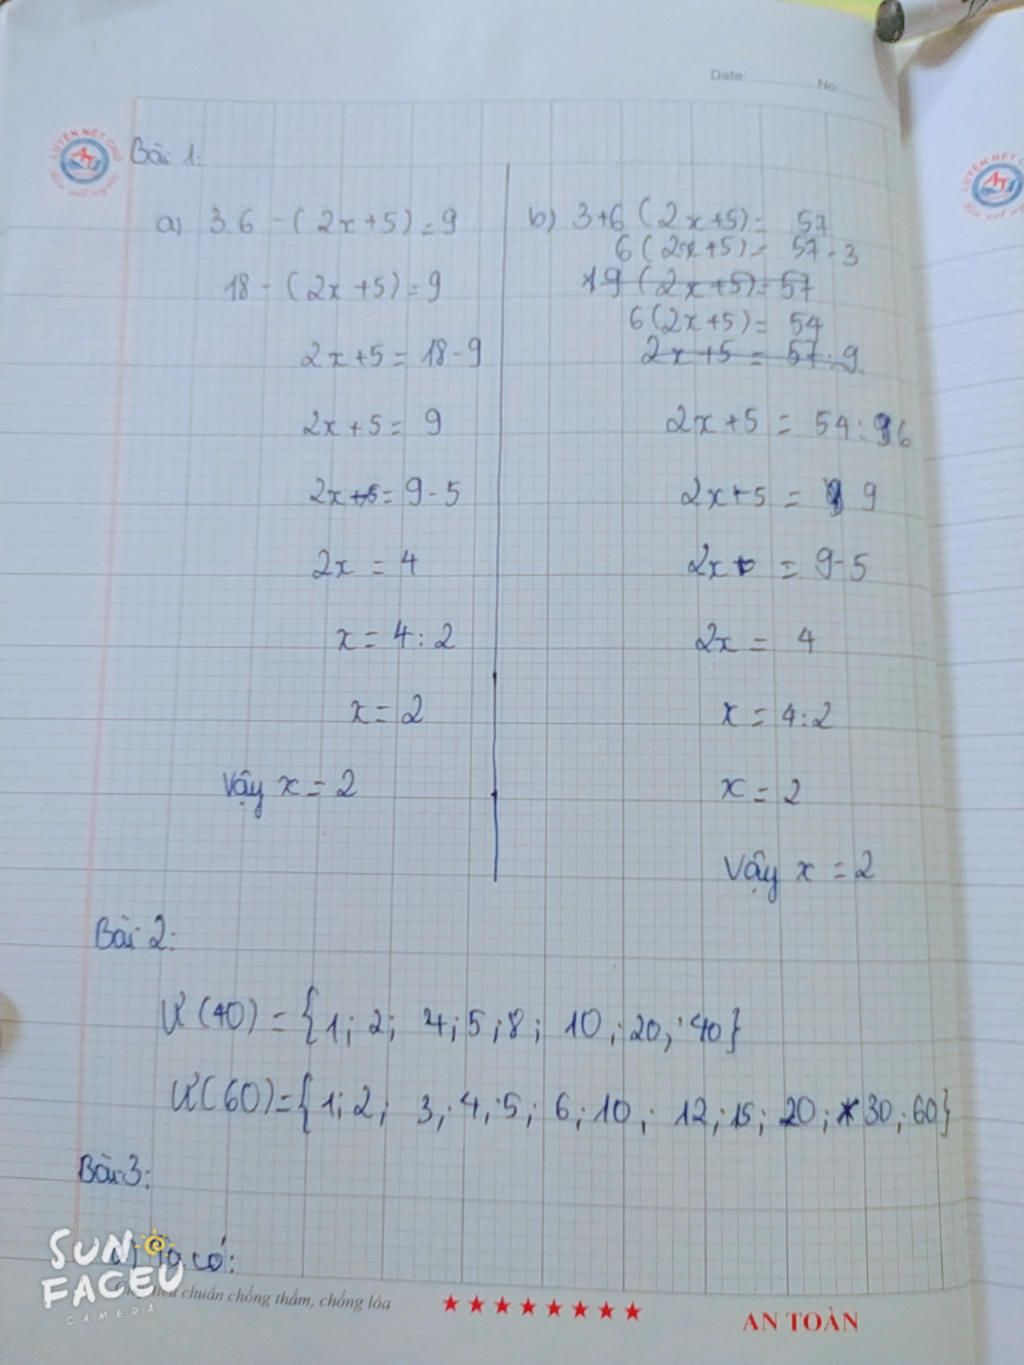 Date: No
LUYỆN NÉT CHỮ
Bài 1:
a) 3.6 - (2x+5) = 9
18 - (2x+5) = 9
2x+5 = 18-9
2x+5 = 9
2x+5 = 9-5
2x = 4
x = 4:2
x = 2
Vậy x = 2
b) 3+6 (2x+5) = 57
6 (2x+5) = 57-3
19 (2x+5) = 57
6(2x+5) = 54
2x+5 = 57:9
2x+5 = 54:6
2x+5 = 9
2x = 9-5
2x = 4
x = 4:2
x = 2
Vậy x = 2
Bài 2:
Ư(40) = {1; 2; 4; 5; 8; 10; 20; 40}
Ư(60) = {1; 2; 3; 4; 5; 6; 10; 12; 15; 20; 30; 60}
Bài 3:
a) Ta có:
SUN
FACEU
CAMERA
chuẩn chống thấm, chống lóa
★★★★★★★★
AN TOÀN